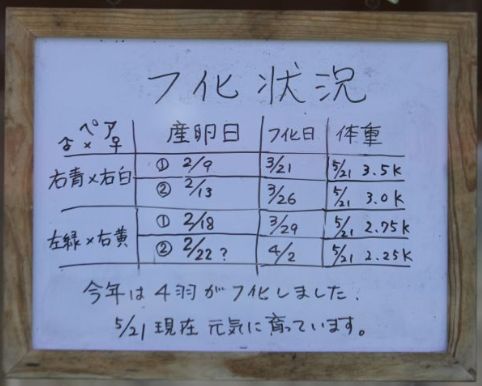 フ化状況
ペア 産卵日 フ化日 体重
♂ × ♀
右青×右白 ① 2/9 3/21 5/21 3.5K
② 2/13 3/26 5/21 3.0K
左緑×右黄 ① 2/18 3/29 5/21 2.75K
② 2/22? 4/2 5/21 2.25K
今年は4羽がフ化しました.
5/21現在 元気に育っています。